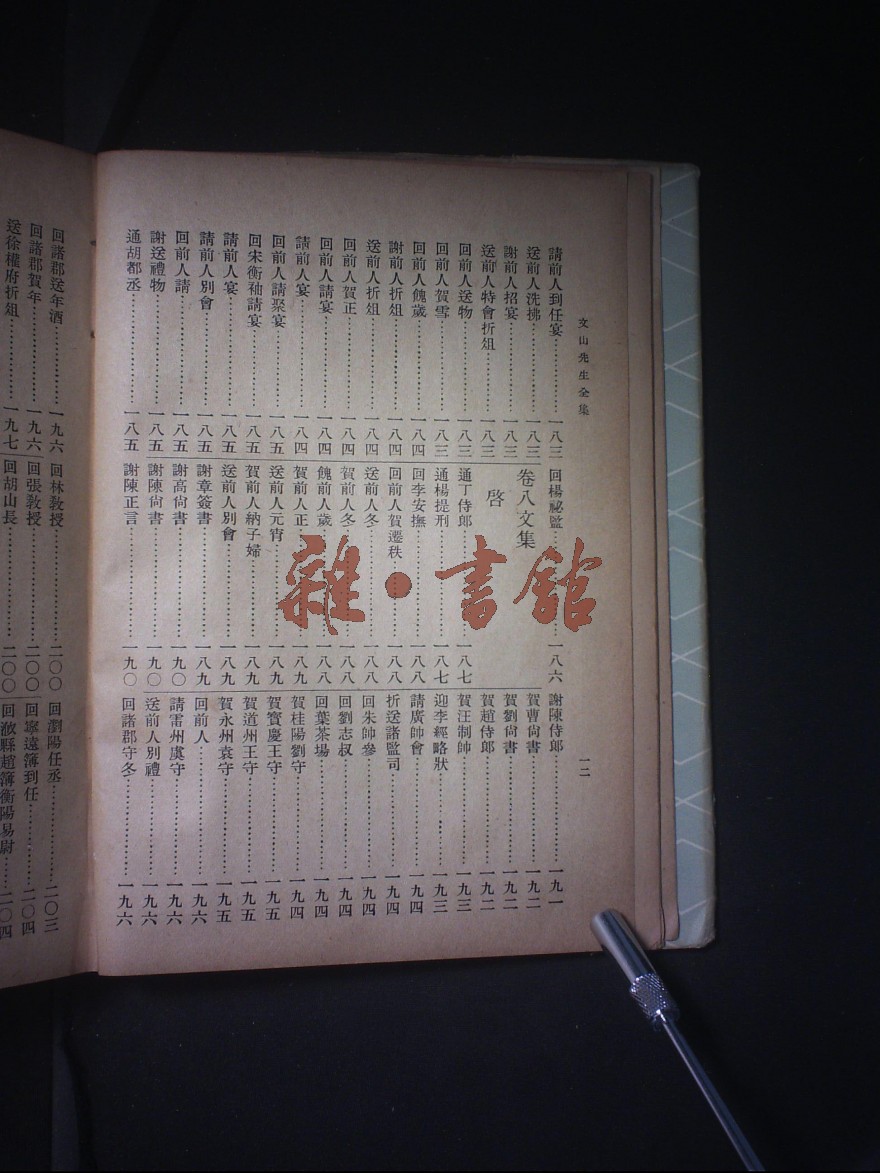 文山先生全集 一二
請前人到任宴…………一八三
送前人洗拂…………一八三
謝前人招宴…………一八三
送前人特會折俎…………一八三
回前人送物…………一八三
回前人賀雪…………一八三
回前人餽歲…………一八四
謝前人折俎…………一八四
送前人折俎…………一八四
回前人賀正…………一八四
回前人請宴…………一八四
請前人宴…………一八四
回前人請聚宴…………一八五
回宋衡袖請宴…………一八五
請前人宴…………一八五
請前人別會…………一八五
回前人請…………一八五
謝送禮物…………一八五
通胡都丞…………一八五
回楊祕監…………一八六
卷八文集
啓
通丁侍郎…………一八七
通楊提刑…………一八七
回李安撫…………一八八
回前人賀遷秩…………一八八
送前人冬…………一八八
賀前人冬…………一八八
餽前人歲…………一八八
賀前人正…………一八九
送前人元宵…………一八九
賀前人納子婦…………一八九
送前人別會…………一八九
謝章簽書…………一八九
謝高尙書…………一九〇
謝陳尙書…………一九〇
謝陳正言…………一九〇
謝陳侍郎…………一九一
賀曹尙書…………一九二
賀劉尙書…………一九二
賀趙侍郎…………一九二
賀汪制帥…………一九三
迎李經略狀…………一九三
請廣帥會…………一九四
折送諸監司…………一九四
回朱帥參…………一九四
回劉志叔…………一九四
回葉茶場…………一九四
賀桂陽劉守…………一九四
賀寶慶王守…………一九五
賀道州王守…………一九五
賀永州袁守…………一九五
回前人…………一九六
請雷州虞守…………一九六
送前人別禮…………一九六
回諸郡守冬…………一九六
回諸郡送年酒…………一九六
回諸郡賀年…………一九六
送徐權府折俎…………一九七
回林敎授…………二〇〇
回張敎授…………二〇〇
回胡山長…………二〇〇
回瀏陽任丞…………二〇三
回寧遠簿到任…………二〇四
回攸縣趙簿衡陽易尉……二〇四
雜·書館